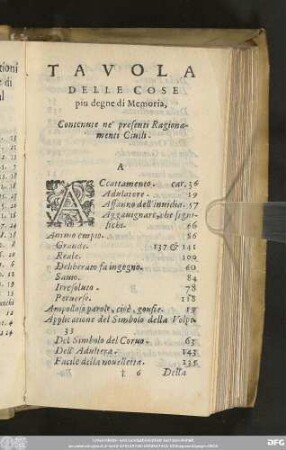 TAVOLA
DELLE COSE
piu degne di Memoria,
Contenute ne' presenti Ragiona-
menti Ciuili.
A
ACcattamento. car. 36
Adulatore. 19
Affanno dell'inuidia. 57
che signi-
fichi. 66
Animo empio. 86
Grande. 137 & 141
Reale. 100
Deliberato fa ingegno. 60
Sano. 84
Irresoluto. 78
Peruerso. 218
Ampollose parole, cioè, gonfie. 19
Applicatione del Simbolo della Volpe.
33
Del Simbolo del Coruo. 65
Dell' Adultera. 143
Facile della nouelletta. 235
6 Della